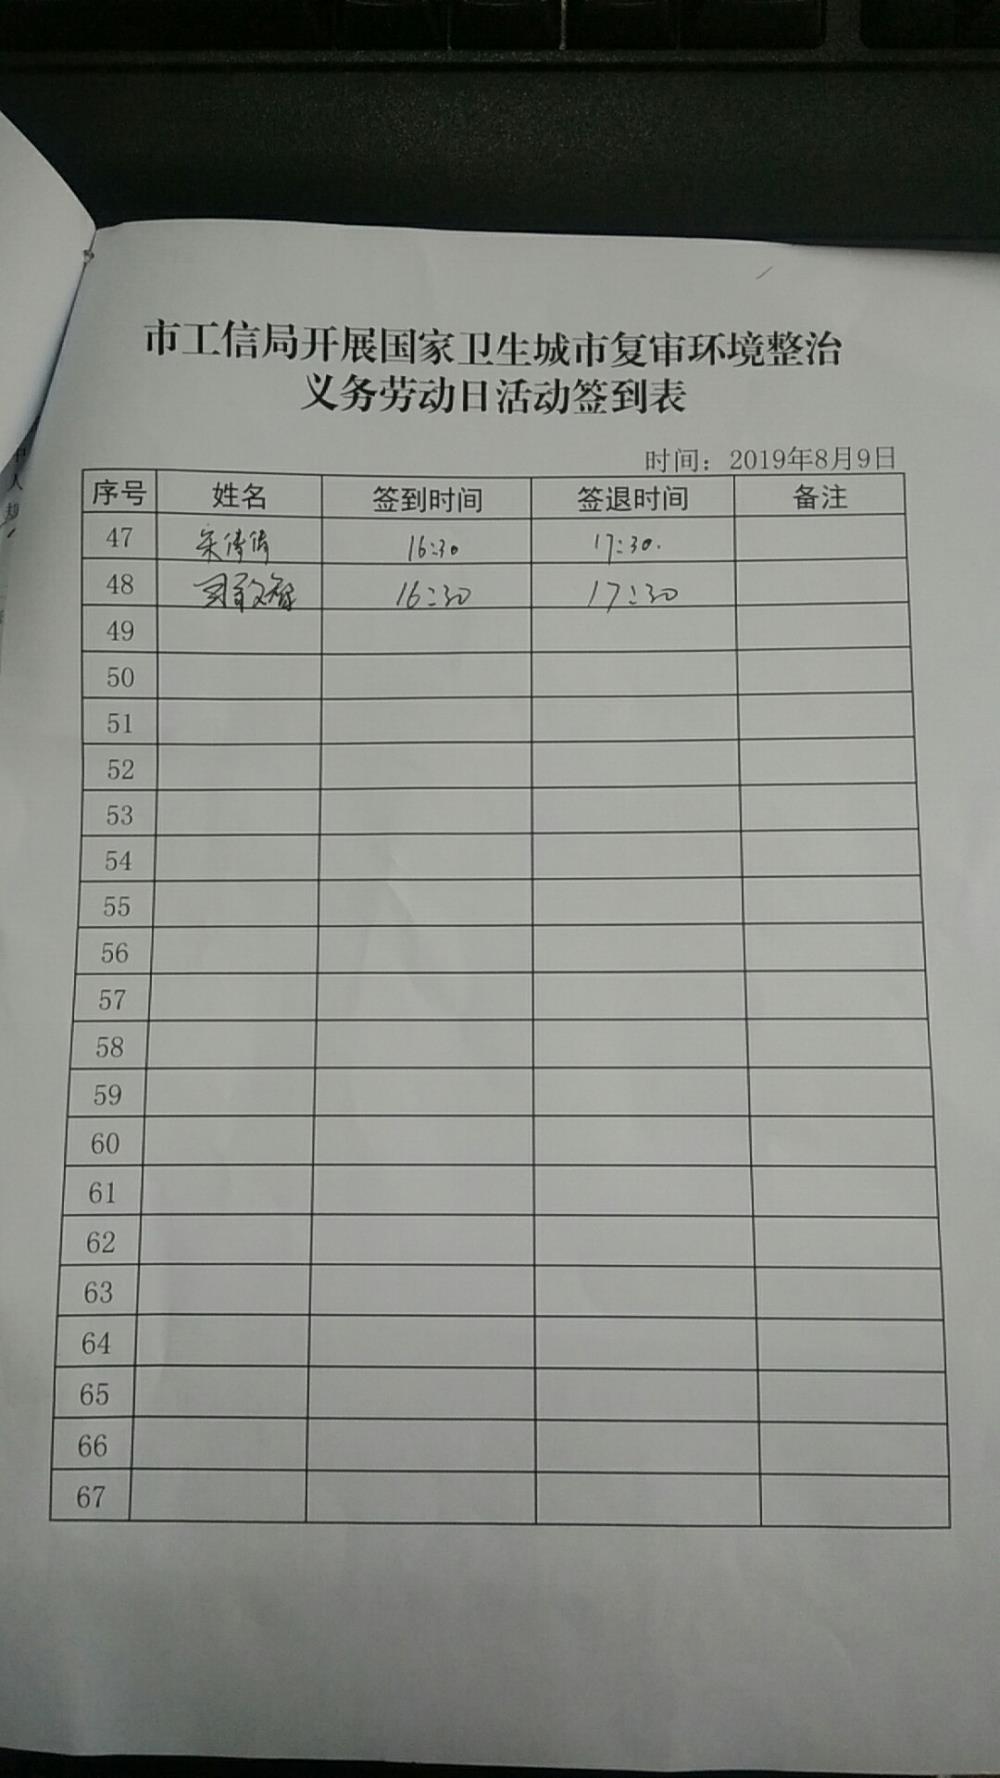 市工信局开展国家卫生城市复审环境整治
义务劳动日活动签到表
时间：2019年8月9日
序号 姓名 签到时间 签退时间 备注
47 宋倩倩 16:30 17:30.
48 16:30 17:30
49
50
51
52
53
54
55
56
57
58
59
60
61
62
63
64
65
66
67